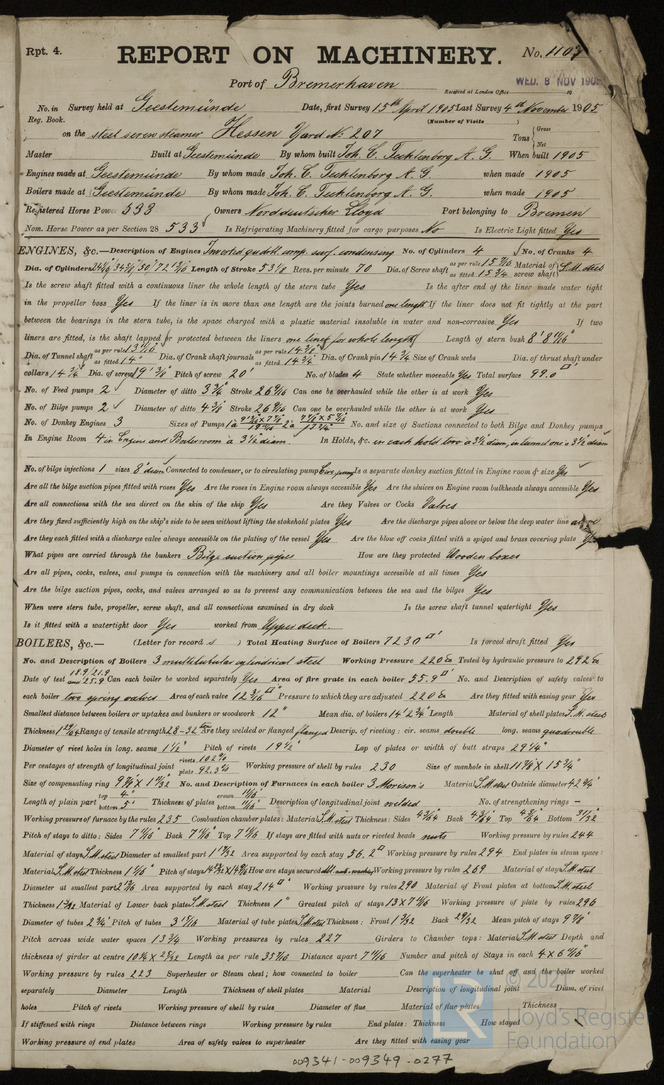 Rpt. 4.
REPORT ON MACHINERY.
No. 1107
Port of Bremerhaven
Received at London Office WED. 8 NOV 1905
No. in Survey held at Geestemünde Date, first Survey 15th April 1905 Last Survey 4th November 1905
Reg. Book. (Number of Visits
on the steel screw steamer Hessen Yard No. 207 Tons { Gross
Net
Master Built at Geestemünde By whom built Joh. C. Tecklenborg A. G. When built 1905
Engines made at Geestemünde By whom made Joh. C. Tecklenborg A. G. when made 1905
Boilers made at Geestemünde By whom made Joh. C. Tecklenborg A. G. when made 1905
Registered Horse Power 533 Owners Norddeutscher Lloyd Port belonging to Bremen
Nom. Horse Power as per Section 28 533 Is Refrigerating Machinery fitted for cargo purposes No Is Electric Light fitted Yes
ENGINES, &c.—Description of Engines Inverted quadl. comp. surf. condensing No. of Cylinders 4 No. of Cranks 4
Dia. of Cylinders Length of Stroke 53 1/8 Revs. per minute 70 Dia. of Screw shaft as per rule as fitted 15 3/4 Material of screw shaft S.M. steel
Is the screw shaft fitted with a continuous liner the whole length of the stern tube Yes Is the after end of the liner made water tight
in the propeller boss Yes If the liner is in more than one length are the joints burned one length If the liner does not fit tightly at the part
between the bearings in the stern tube, is the space charged with a plastic material insoluble in water and non-corrosive Yes If two
liners are fitted, is the shaft lapped or protected between the liners one liner for whole length Length of stern bush
Dia. of Tunnel shaft as per rule as fitted 14" Dia. of Crank shaft journals as per rule as fitted 14 3/4 Dia. of Crank pin 14 3/4 Size of Crank webs Dia. of thrust shaft under
collars 14 3/4 Dia. of screw Pitch of screw 20' No. of blades 4 State whether moveable Yes Total surface 99.0
No. of Feed pumps 2 Diameter of ditto 3 3/4 Stroke 26 9/16 Can one be overhauled while the other is at work Yes
No. of Bilge pumps 2 Diameter of ditto 4 3/8 Stroke 26 9/16 Can one be overhauled while the other is at work Yes
No. of Donkey Engines 3 Sizes of Pumps No. and size of Suctions connected to both Bilge and Donkey pumps
In Engine Room 4 in Engine and Boilerroom a 3 1/2 diam. In Holds, &c. in each hold two a 3 1/2 diam, in tunnel one a 3 1/2 diam
No. of bilge injections 1 sizes 8" diam Connected to condenser, or to circulating pump Is a separate donkey suction fitted in Engine room & size Yes
Are all the bilge suction pipes fitted with roses Yes Are the roses in Engine room always accessible Yes Are the sluices on Engine room bulkheads always accessible Yes
Are all connections with the sea direct on the skin of the ship Yes Are they Valves or Cocks Valves
Are they fixed sufficiently high on the ship's side to be seen without lifting the stokehold plates Yes Are the discharge pipes above or below the deep water line above
Are they each fitted with a discharge valve always accessible on the plating of the vessel Yes Are the blow off cocks fitted with a spigot and brass covering plate Yes
What pipes are carried through the bunkers Bilge suction pipes How are they protected Wooden boxes
Are all pipes, cocks, valves, and pumps in connection with the machinery and all boiler mountings accessible at all times Yes
Are the bilge suction pipes, cocks, and valves arranged so as to prevent any communication between the sea and the bilges Yes
When were stern tube, propeller, screw shaft, and all connections examined in dry dock Is the screw shaft tunnel watertight Yes
Is it fitted with a watertight door Yes worked from Upper deck
BOILERS, &c.— (Letter for record s ) Total Heating Surface of Boilers 7230 Is forced draft fitted Yes
No. and Description of Boilers 3 multitubular cylindrical steel Working Pressure 220 Tested by hydraulic pressure to 292
Date of test Can each boiler be worked separately Yes Area of fire grate in each boiler 55.9 No. and Description of safety valves to
each boiler two spring valves Area of each valve Pressure to which they are adjusted 220 Are they fitted with easing gear Yes
Smallest distance between boilers or uptakes and bunkers or woodwork 12" Mean dia. of boilers 14' 2 3/4 Length Material of shell plates S.M. steel
Thickness Range of tensile strength 28-32 Are they welded or flanged flanged Descrip. of riveting: cir. seams double long. seams quadruble
Diameter of rivet holes in long. seams 1 1/2" Pitch of rivets 19 1/2 Lap of plates or width of butt straps 29 1/4"
Per centages of strength of longitudinal joint rivets 102% plate 92.3% Working pressure of shell by rules 230 Size of manhole in shell
Size of compensating ring No. and Description of Furnaces in each boiler 3 Morison's Material S.M. steel Outside diameter
Length of plain part top bottom Thickness of plates crown bottom Description of longitudinal joint welded No. of strengthening rings —
Working pressure of furnace by the rules 235 Combustion chamber plates: Material S.M. steel Thickness: Sides Back Top Bottom
Pitch of stays to ditto: Sides 7 7/16 Back 7 7/16 Top 7 7/16 If stays are fitted with nuts or riveted heads nuts Working pressure by rules 244
Material of stays S.M. steel Diameter at smallest part Area supported by each stay 56.2 Working pressure by rules 294 End plates in steam space:
Material S.M. steel Thickness Pitch of stays How are stays secured Working pressure by rules 269 Material of stays S.M. steel
Diameter at smallest part Area supported by each stay 214 Working pressure by rules 290 Material of Front plates at bottom S.M. steel
Thickness Material of Lower back plate S.M. steel Thickness 1" Greatest pitch of stays 13 x 7 7/16 Working pressure of plate by rules 296
Diameter of tubes 2 3/4 Pitch of tubes Material of tube plates S.M. steel Thickness: Front Back 29/32 Mean pitch of stays
Pitch across wide water spaces 13 3/4 Working pressures by rules 227 Girders to Chamber tops: Material S.M. steel Depth and
thickness of girder at centre Length as per rule Distance apart 7 7/16 Number and pitch of Stays in each
Working pressure by rules 223 Superheater or Steam chest; how connected to boiler Can the superheater be shut off and the boiler worked
separately Diameter Length Thickness of shell plates Material Description of longitudinal joint Diam. of rivet
holes Pitch of rivets Working pressure of shell by rules Diameter of flue Material of flue plates Thickness
If stiffened with rings Distance between rings Working pressure by rules End plates: Thickness How stayed
Working pressure of end plates Area of safety valves to superheater Are they fitted with easing gear
Lloyd's Register
Foundation
009341-009349-0277